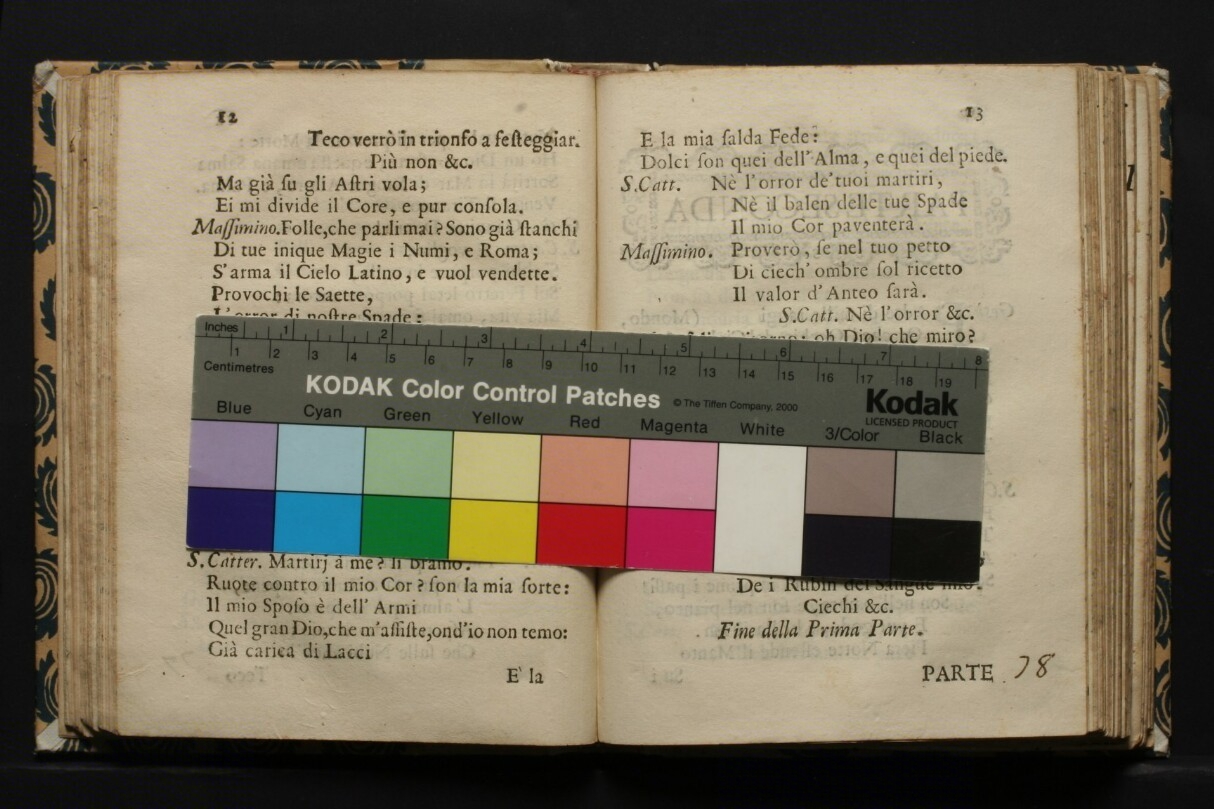 12
Teco verrò in trionfo a festeggiar.
Più non &c.
Ma già su gli Astri vola;
Ei mi divide il Core, e pur consola.
Massimino. Folle, che parli mai? Sono già stanchi
Di tue inique Magie i Numi, e Roma;
S'arma il Cielo Latino, e vuol vendette.
Provochi le Saette,
L'orror di nostre Spade:
S.Catter. Martirj à me? li bramo.
Ruote contro il mio Cor? son la mia sorte:
Il mio Sposo è dell'Armi
Quel gran Dio, che m'assiste, ond'io non temo:
Già carica di Lacci
E' la
13
E la mia salda Fede:
Dolci son quei dell'Alma, e quei del piede.
S.Catt. Nè l'orror de' tuoi martiri,
Nè il balen delle tue Spade
Il mio Cor paventerà.
Massimino. Proverò, se nel tuo petto
Di ciech' ombre sol ricetto
Il valor d'Anteo sarà.
S.Catt. Nè l'orror &c.
oh Dio! che miro?
De i Rubin del Sangue mio.
Ciechi &c.
Fine della Prima Parte.
PARTE 78
Inches 1 2 3 4 5 6 7 8
Centimetres 1 2 3 4 5 6 7 8 9 10 11 12 13 14 15 16 17 18 19
KODAK Color Control Patches © The Tiffen Company, 2000
Kodak
LICENSED PRODUCT
Blue Cyan Green Yellow Red Magenta White 3/Color Black